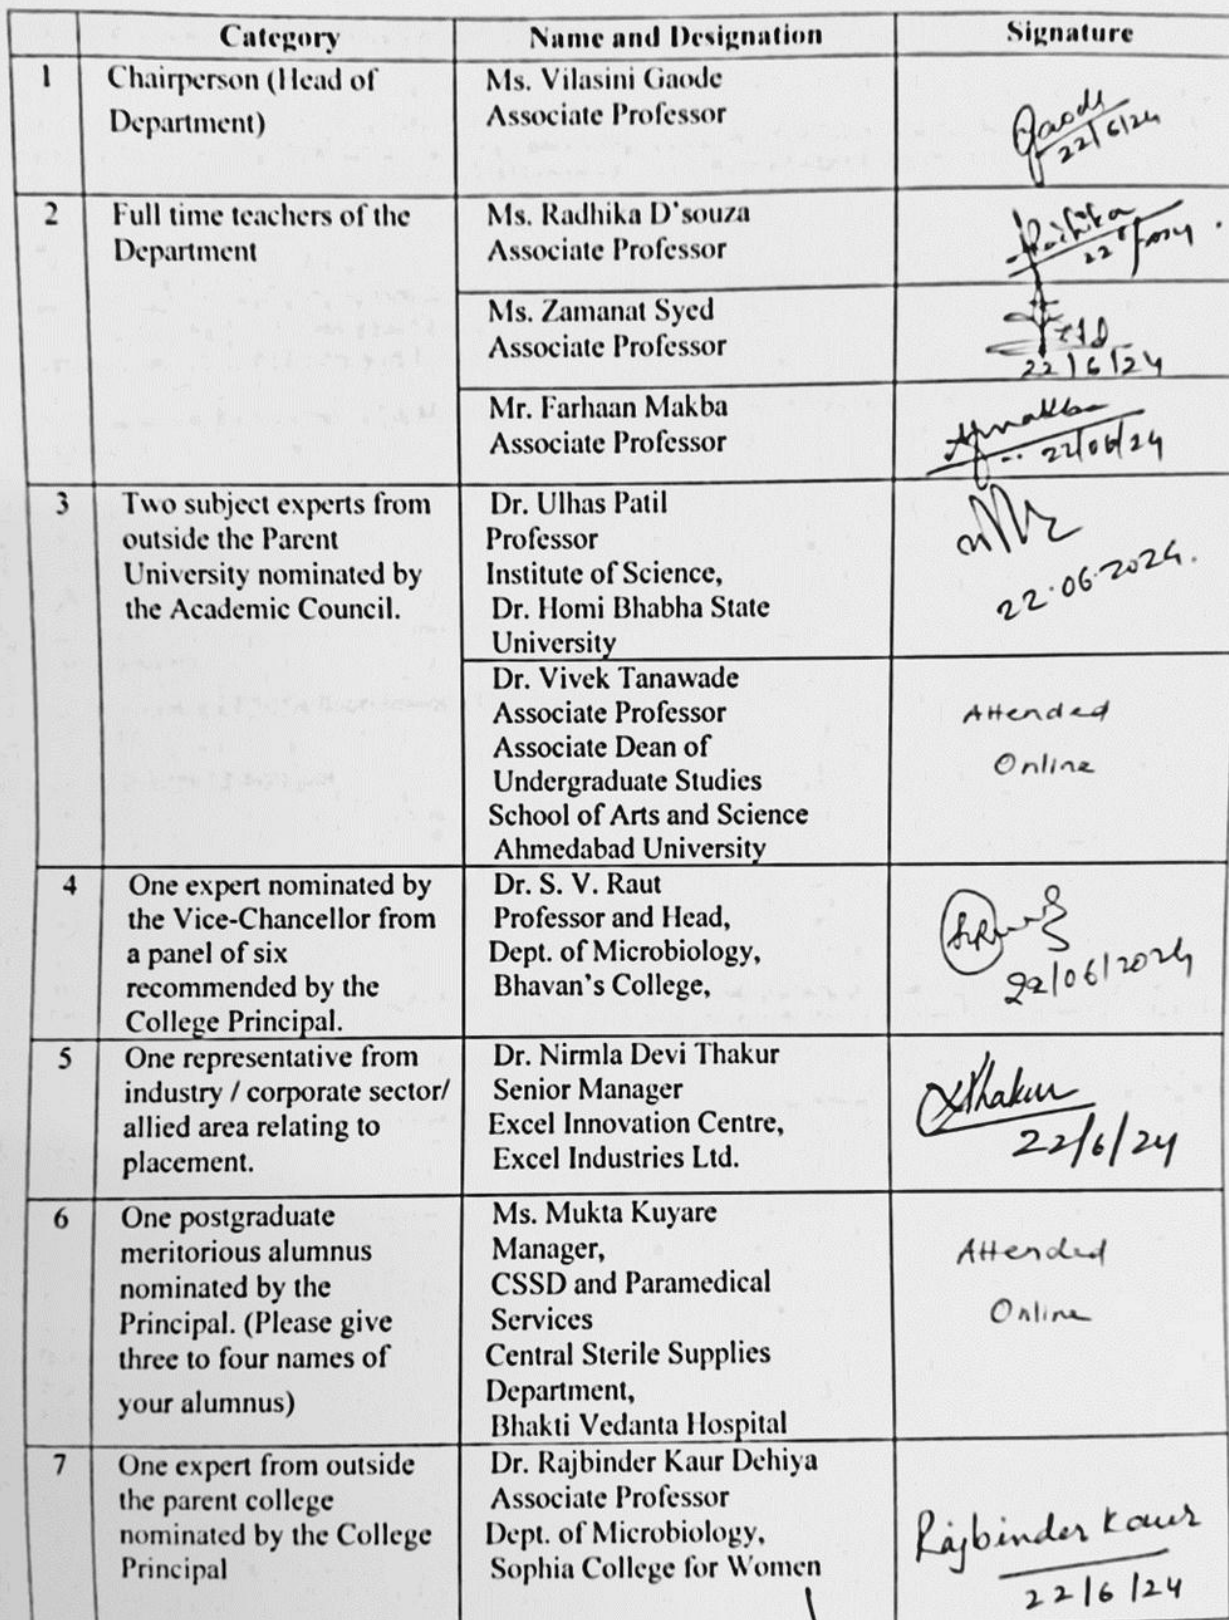 Category Name and Designation Signature
1 Chairperson (Head of
Department)
Ms. Vilasini Gaode
Associate Professor
Gaode
22/6/24
2 Full time teachers of the
Department
Ms. Radhika D'souza
Associate Professor
Ms. Zamanat Syed
Associate Professor
22/6/24
Mr. Farhaan Makba
Associate Professor
22/06/24
3 Two subject experts from
outside the Parent
University nominated by
the Academic Council.
Dr. Ulhas Patil
Professor
Institute of Science,
Dr. Homi Bhabha State
University
22.06.2024.
Dr. Vivek Tanawade
Associate Professor
Associate Dean of
Undergraduate Studies
School of Arts and Science
Ahmedabad University
Attended
Online
4 One expert nominated by
the Vice-Chancellor from
a panel of six
recommended by the
College Principal.
Dr. S. V. Raut
Professor and Head,
Dept. of Microbiology,
Bhavan's College,
22/06/2024
5 One representative from
industry / corporate sector/
allied area relating to
placement.
Dr. Nirmla Devi Thakur
Senior Manager
Excel Innovation Centre,
Excel Industries Ltd.
Thakur
22/6/24
6 One postgraduate
meritorious alumnus
nominated by the
Principal. (Please give
three to four names of
your alumnus)
Ms. Mukta Kuyare
Manager,
CSSD and Paramedical
Services
Central Sterile Supplies
Department,
Bhakti Vedanta Hospital
Attended
Online
7 One expert from outside
the parent college
nominated by the College
Principal
Dr. Rajbinder Kaur Dehiya
Associate Professor
Dept. of Microbiology,
Sophia College for Women
Rajbinder Kaur
22/6/24